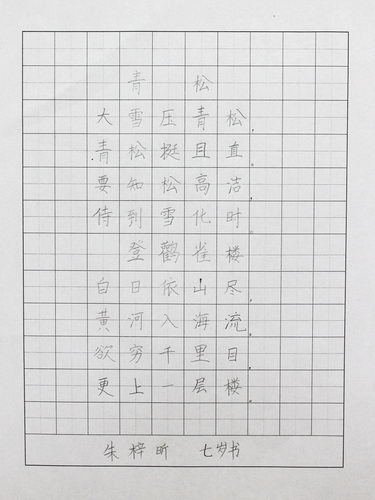 青 松
大雪压青松
青松挺且直
要知松高洁
侍到雪化时
登鹳雀楼
白日依山尽
黄河入海流
欲穷千里目
更上一层楼
朱梓昕 七岁书